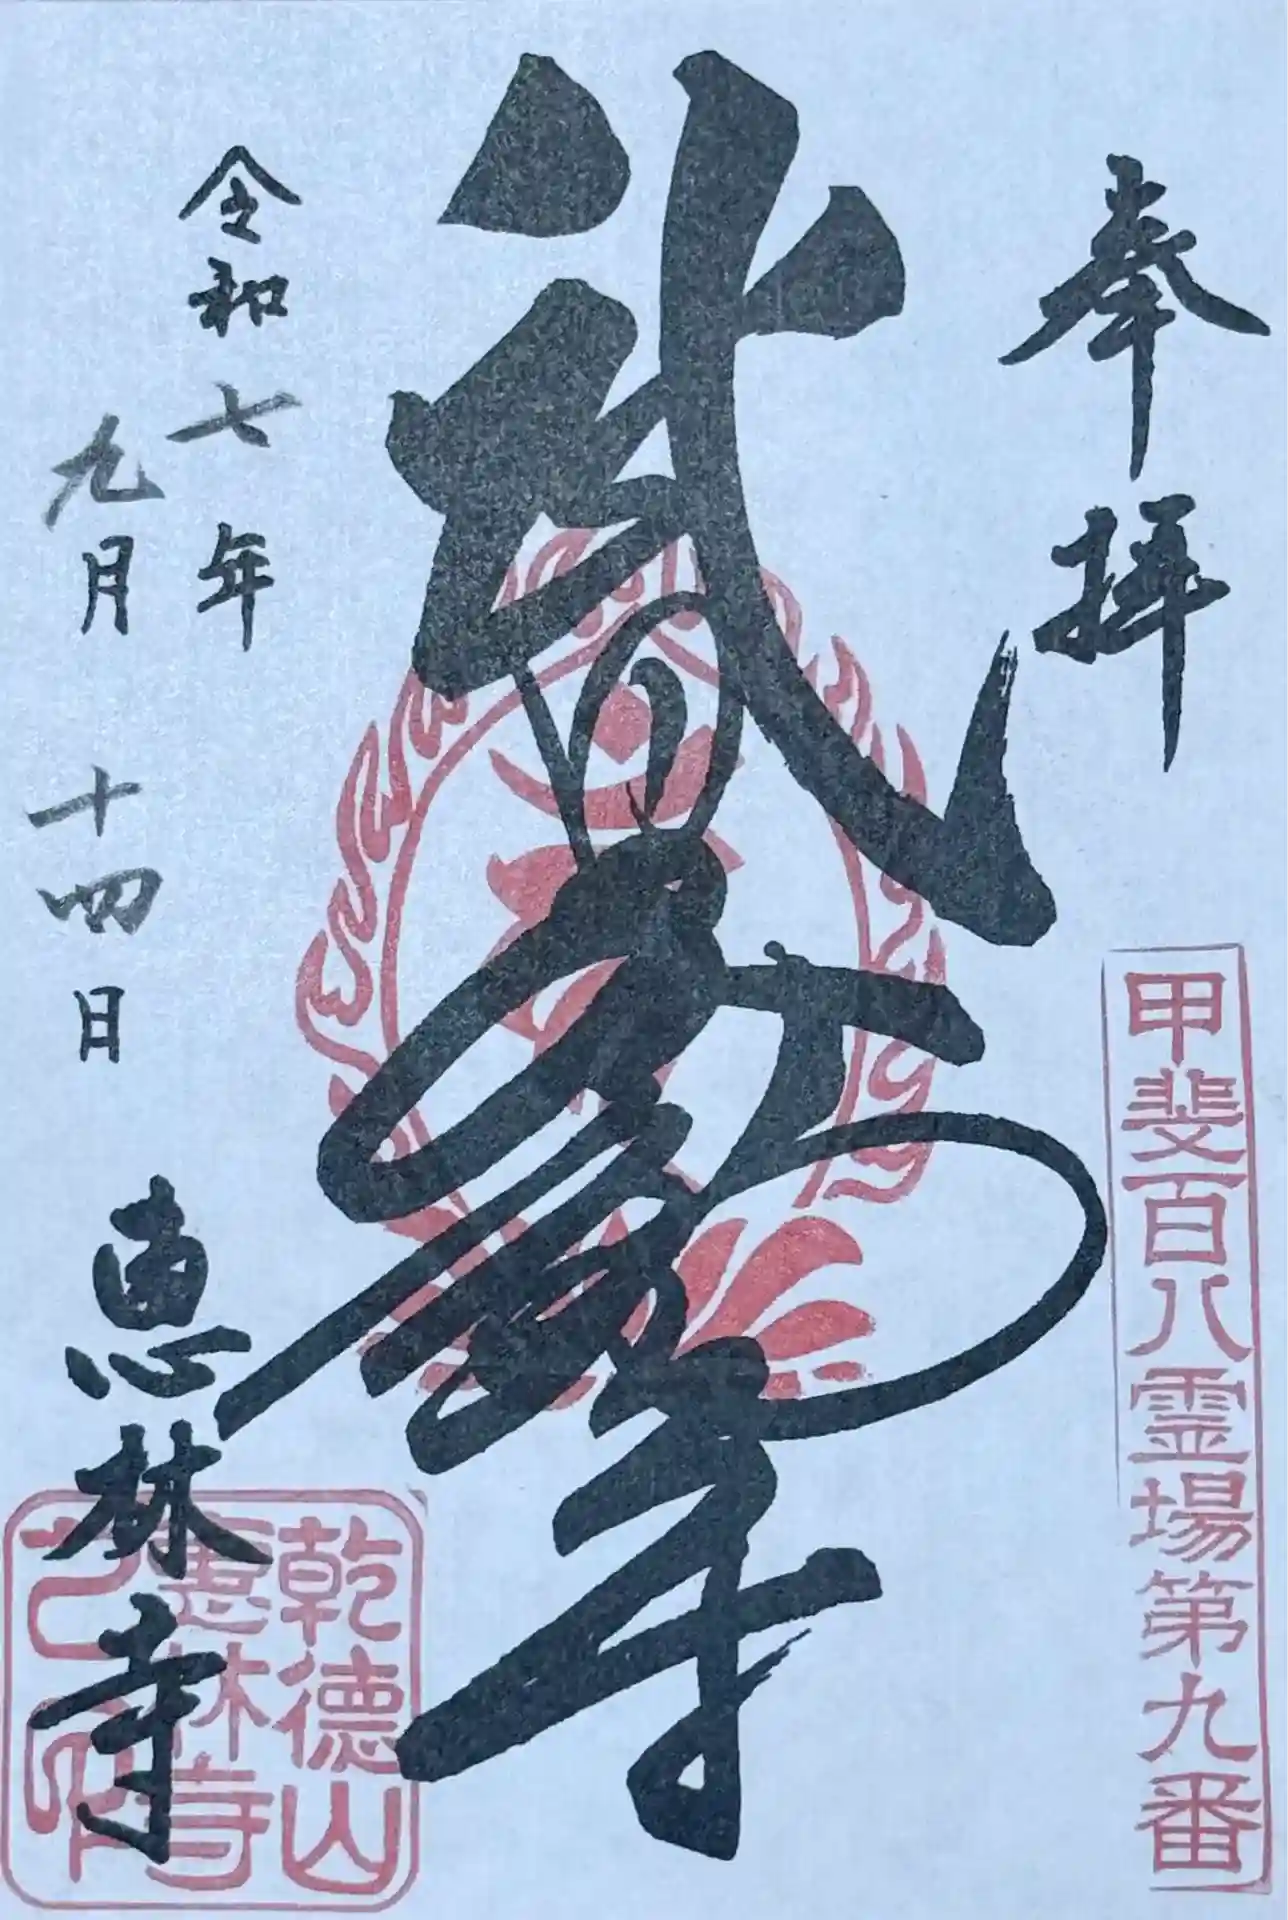 奉拝
甲斐百八霊場第九番
武田不動尊
令和七年
九月十四日
恵林寺
乾徳山
恵林寺
之印